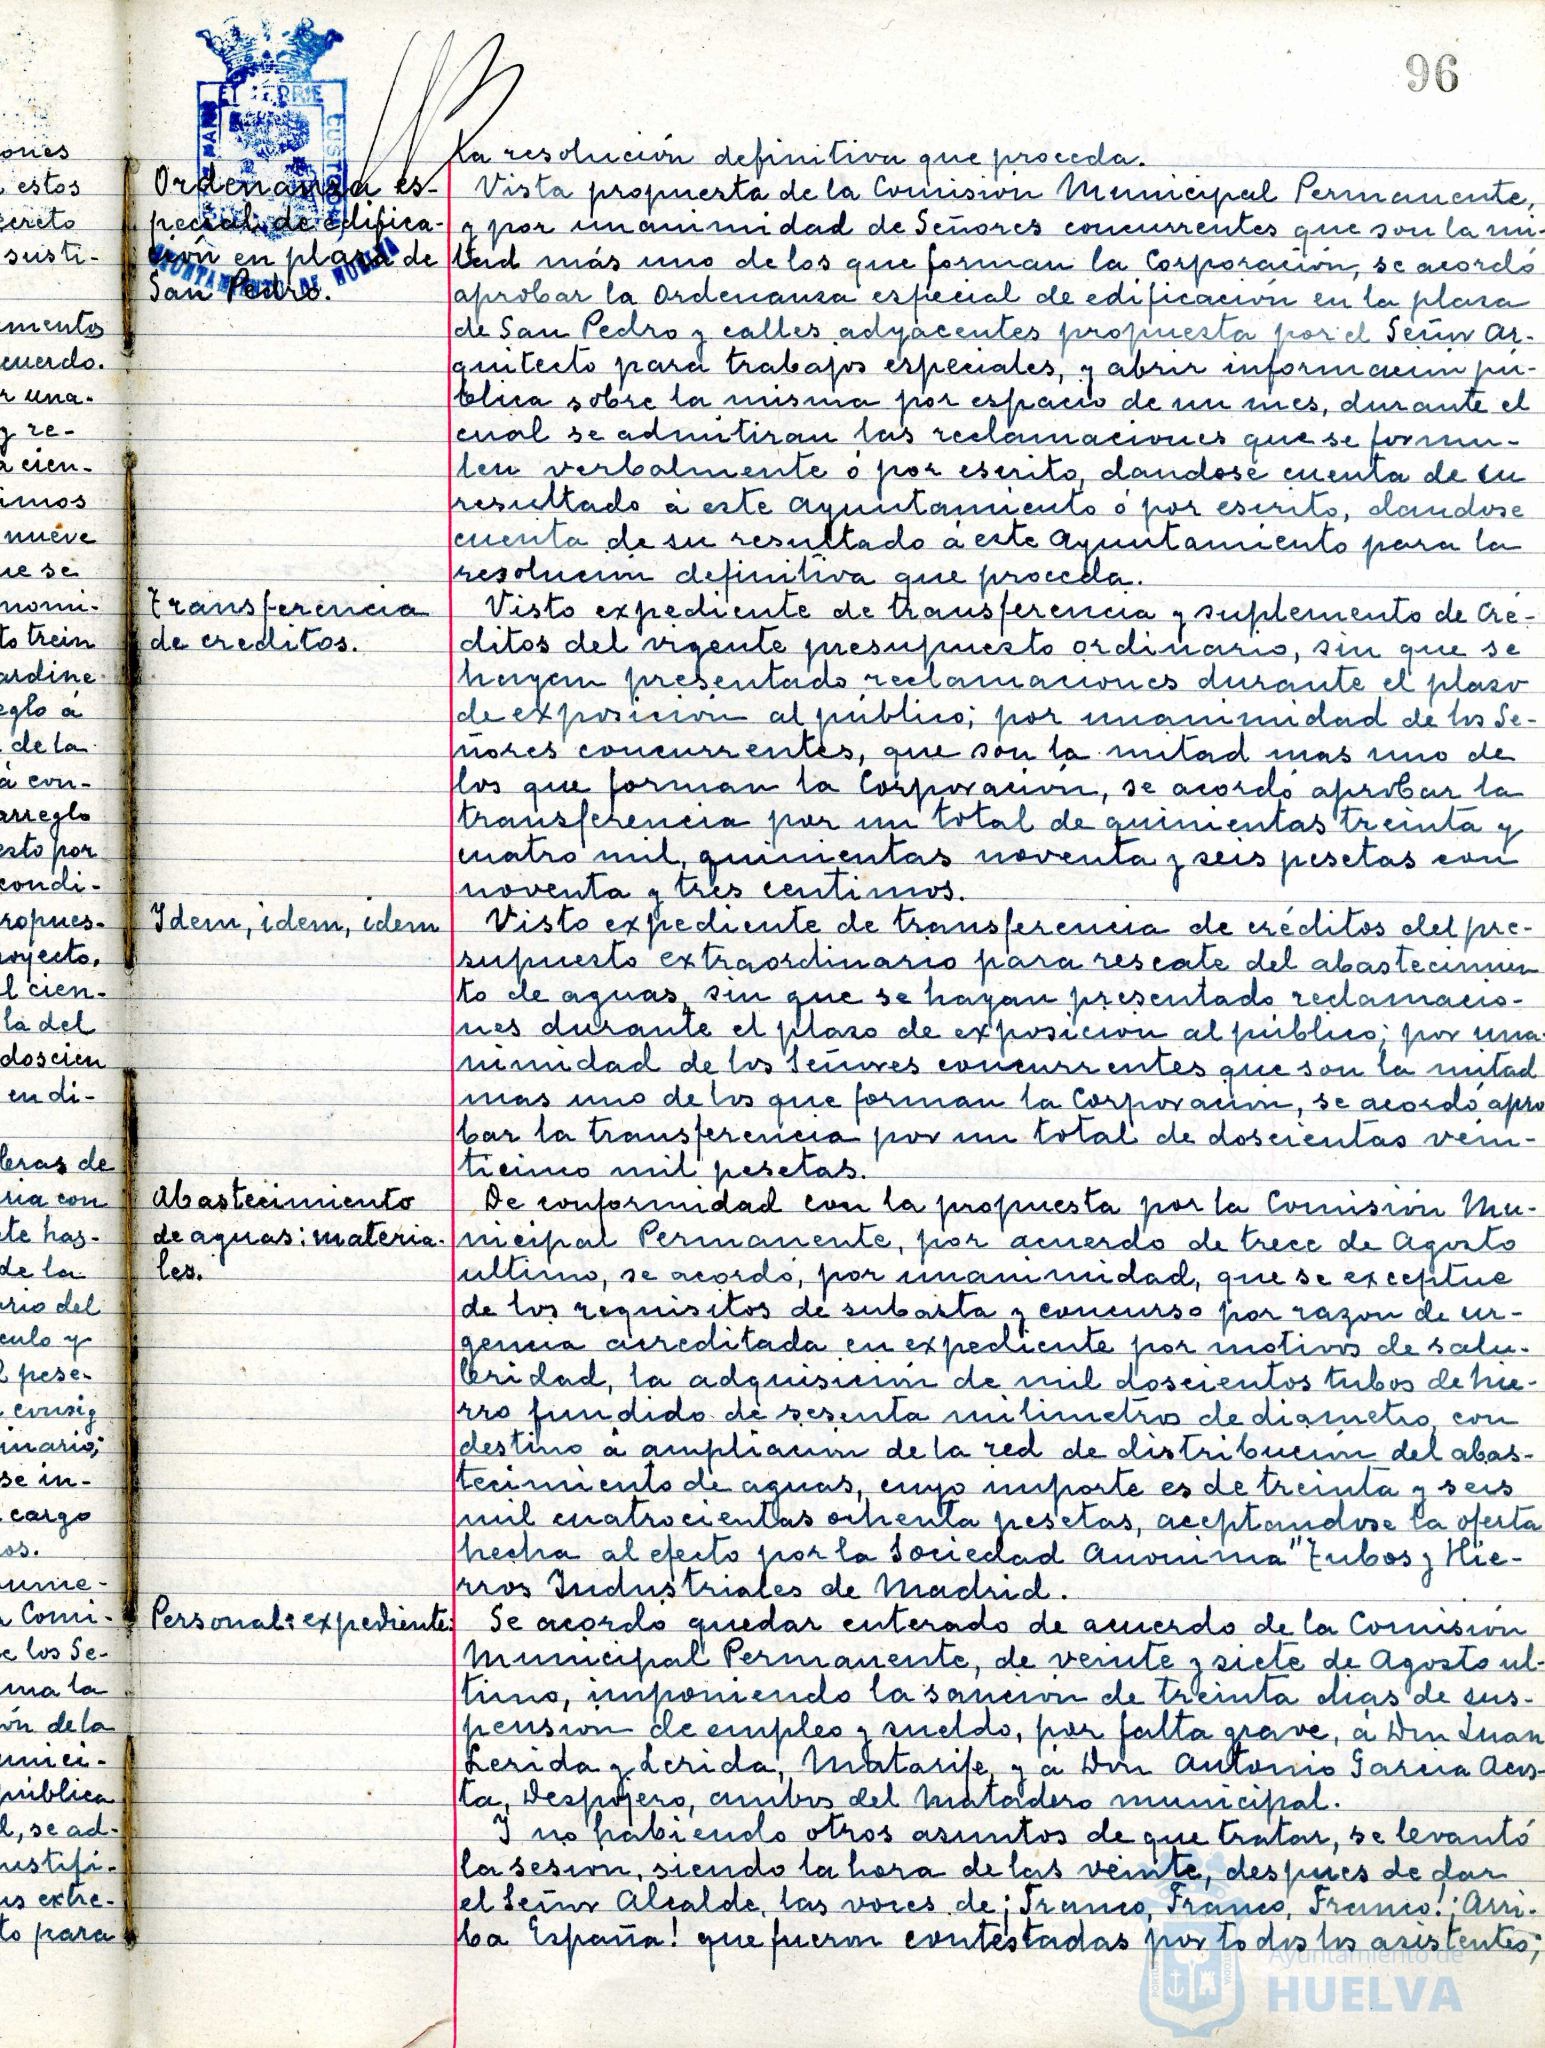 96
la resolución definitiva que proceda.
Ordenanza es-
pecial de edifica-
ción en plaza de
San Pedro.
Vista propuesta de la Comisión Municipal Permanente,
y por unanimidad de Señores concurrentes que son la mi-
tad más uno de los que forman la Corporación, se acordó
aprobar la Ordenanza especial de edificación en la plaza
de San Pedro y calles adyacentes propuesta por el Señor Ar-
quitecto para trabajos especiales, y abrir información pú-
blica sobre la misma por espacio de un mes, durante el
cual se admitiran las reclamaciones que se formu-
len verbalmente ó por escrito, dandose cuenta de su
resultado á este Ayuntamiento ó por escrito, dandose
cuenta de su resultado á este Ayuntamiento para la
resolucion definitiva que proceda.
Transferencia
de creditos.
Visto expediente de transferencia y suplemento de Cré-
ditos del vigente presupuesto ordinario, sin que se
hayan presentado reclamaciones durante el plazo
de exposición al público; por unanimidad de los Se-
ñores concurrentes, que son la mitad mas uno de
los que forman la Corporación, se acordó aprobar la
transferencia por un total de quinientas treinta y
cuatro mil, quinientas noventa y seis pesetas con
noventa y tres centimos.
Idem, idem, idem
Visto expediente de transferencia de créditos del pre-
supuesto extraordinario para rescate del abastecimien
to de aguas, sin que se hayan presentado reclamacio-
nes durante el plazo de exposición al público; por una-
nimidad de los Señores concurrentes que son la mitad
mas uno de los que forman la Corporación, se acordó apro
bar la transferencia por un total de doscientas vein-
ticinco mil pesetas.
Abastecimiento
de aguas: materia-
les.
De conformidad con la propuesta por la Comisión Mu-
nicipal Permanente, por acuerdo de trece de Agosto
ultimo, se acordó, por unanimidad, que se exceptue
de los requisitos de subasta y concurso por razon de ur-
gencia acreditada en expediente por motivos de salu-
bridad, la adquisición de mil doscientos tubos de hie-
rro fundido de sesenta milimetros de diametro, con
destino á ampliación de la red de distribución del abas-
tecimiento de aguas, cuyo importe es de treinta y seis
mil cuatrocientas ochenta pesetas, aceptandose la oferta
hecha al efecto por la Sociedad Anonima "Tubos y Hie-
rros Industriales de Madrid.
Personal: expediente:
Se acordó quedar enterado de acuerdo de la Comisión
Municipal Permanente, de veinte y siete de Agosto ul-
timo, imponiendo la sanción de treinta dias de sus-
pension de empleo y sueldo, por falta grave, á Don Juan
Lerida y Lerida, Matarife, y á Don Antonio Garcia Acos-
ta, Despojero, ambos del Matadero municipal.
Y no habiendo otros asuntos de que tratar, se levantó
la sesion, siendo la hora de las veinte, despues de dar
el Señor Alcalde, las voces de ¡Franco, Franco, Franco! ¡Arri-
ba España! que fueron contestadas por todos los asistentes;
Ayuntamiento de
HUELVA